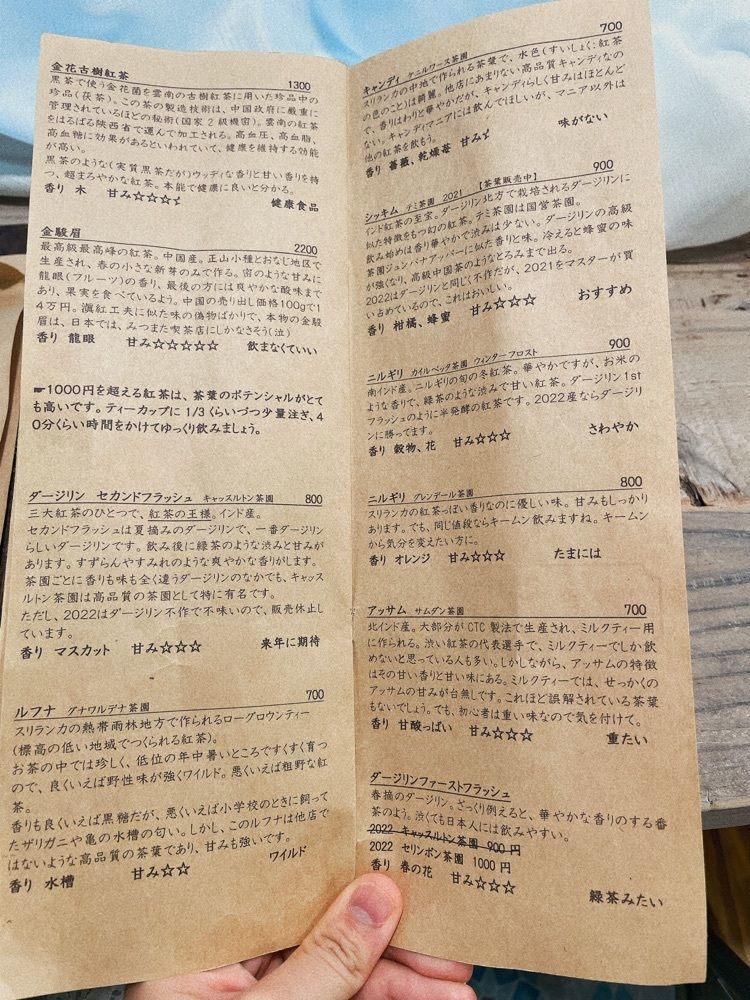 金花古樹紅茶 1300
黒茶で使う金花菌を雲南の古樹紅茶に用いた珍品中の
珍品(茯茶)。この茶の製造技術は、中国政府に厳重に
管理されているほどの秘術(国家2級機密)。雲南の紅茶
をはるばる陝西省で運んで加工される。高血圧、高血脂、
高血糖に効果があるといわれていて、健康を維持する効能
が高い。
黒茶のような(実質黒茶だが)ウッディな香りと甘い香りを持
つ、超まろやかな紅茶。本能で健康に良いと分かる。
香り 木 甘み☆☆☆ 健康食品
金駿眉 2200
最高級最高峰の紅茶。中国産。正山小種とおなじ地区で
生産され、春の小さな新芽のみで作る。密のような甘みに
龍眼(フルーツ)の香り、最後の方には爽やかな酸味まで
あり、果実を食べているよう。中国の売り出し価格100gで1
4万円。滇紅工夫に似た味の偽物ばかりで、本物の金駿
眉は、日本では、みつまた喫茶店にしかなさそう(泣)
香り 龍眼 甘み☆☆☆☆☆ 飲まなくていい
☛1000円を超える紅茶は、茶葉のポテンシャルがとて
も高いです。ティーカップに1/3くらいづつ少量注ぎ、4
0分くらい時間をかけてゆっくり飲みましょう。
ダージリン セカンドフラッシュ キャッスルトン茶園 800
三大紅茶のひとつで、紅茶の王様。インド産。
セカンドフラッシュは夏摘みのダージリンで、一番ダージリン
らしいダージリンです。飲み後に緑茶のような渋みと甘みが
あります。すずらんやすみれのような爽やかな香りがします。
茶園ごとに香りも味も全く違うダージリンのなかでも、キャッス
ルトン茶園は高品質の茶園として特に有名です。
ただし、2022はダージリン不作で不味いので、販売休止し
ています。
香り マスカット 甘み☆☆☆ 来年に期待
ルフナ グナワルデナ茶園 700
スリランカの熱帯雨林地方で作られるローグロウンティー
(標高の低い地域でつくられる紅茶)。
お茶の中では珍しく、低位の年中暑いところですくすく育つ
ので、良くいえば野性味が強くワイルド。悪くいえば粗野な紅
茶。
香りも良くいえば黒糖だが、悪くいえば小学校のときに飼って
たザリガニや亀の水槽の匂い。しかし、このルフナは他店で
はないような高品質の茶葉であり、甘みも強いです。
香り 水槽 甘み☆☆ ワイルド
キャンディ ケニルワース茶園 700
スリランカの中地で作られる茶葉で、水色(すいしょく:紅茶
の色のこと)は綺麗。他店にあまりない高品質キャンディなの
で、香りはわりと華やかだが、キャンディらしく甘みはほとんど
ない。キャンディマニアには飲んでほしいが、マニア以外は
他の紅茶を飲もう。
香り 薔薇、乾燥苺 甘み 味がない
シッキム テミ茶園 2021 【茶葉販売中】 900
インド紅茶の至宝。ダージリン北方で栽培されるダージリンに
似た特徴をもつ幻の紅茶。テミ茶園は国営茶園。
飲み始めは香り華やかで渋みは少ない。ダージリンの高級
茶園ジュンパナアッパーに似た香りと味。冷えると蜂蜜の味
が強くなり、高級中国茶のようなとろみまで出る。
2022はダージリンと同じく不作だが、2021をマスターが買
い占めているので、これはおいしい。
香り 柑橘、蜂蜜 甘み☆☆☆ おすすめ
ニルギリ カイルベック茶園 ウィンターフロスト 900
南インド産。ニルギリの旬の冬紅茶。華やかですが、お米の
ような香りで、緑茶のような渋みで甘い紅茶。ダージリン1st
フラッシュのように半発酵の紅茶です。2022産ならダージリ
ンに勝ってます。
香り 穀物、花 甘み☆☆☆ さわやか
ニルギリ グレンデール茶園 800
スリランカの紅茶っぽい香りなのに優しい味。甘みもしっかり
あります。でも、同じ値段ならキームン飲みますね。キームン
から気分を変えたい方に。
香り オレンジ 甘み☆☆☆ たまには
アッサム サムダン茶園 700
北インド産。大部分がCTC製法で生産され、ミルクティー用
に作られる。渋い紅茶の代表選手で、ミルクティーでしか飲
めないと思っている人も多い。しかしながら、アッサムの特徴
はその甘い香りと甘い味にある。ミルクティーでは、せっかくの
アッサムの甘みが台無しです。これほど誤解されている茶葉
もないでしょう。でも、初心者は重い味なので気を付けて。
香り 甘酸っぱい 甘み☆☆☆ 重たい
ダージリンファーストフラッシュ
春摘のダージリン。ざっくり例えると、華やかな香りのする番
茶のよう。渋くても日本人には飲みやすい。
2022 キャッスルトン茶園 900円
2022 セリンボン茶園 1000円
香り 春の花 甘み☆☆☆ 緑茶みたい